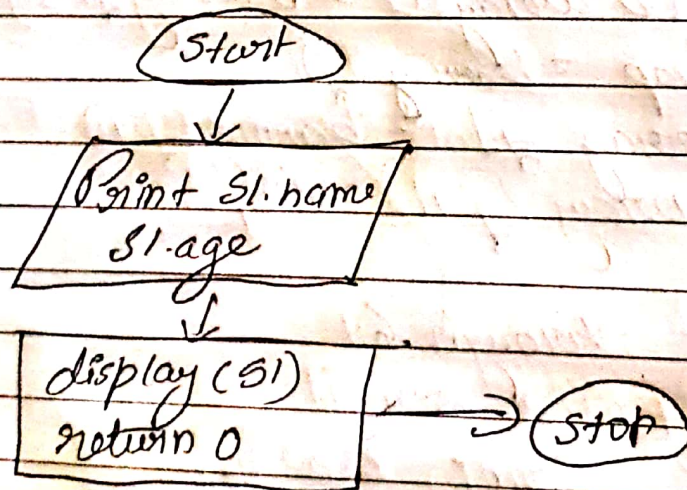 Start
Print S1.name
S1.age
display (S1)
return 0
Stop